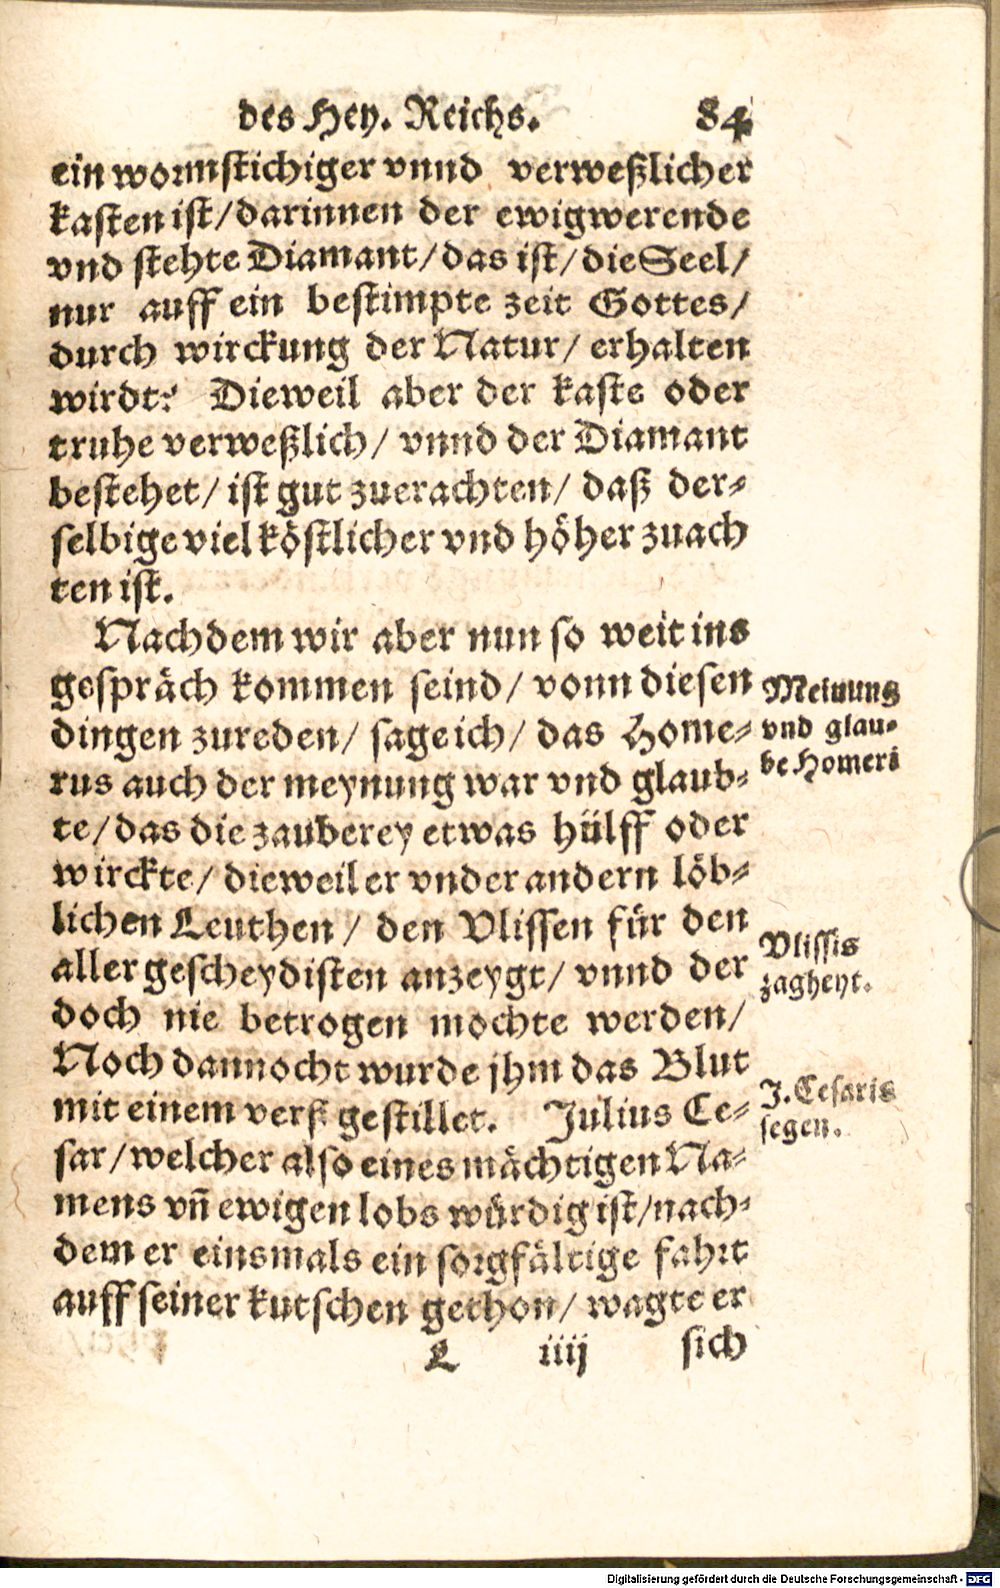 des Hey. Reichs. 84
ein wormstichiger vnnd verweßlicher
kasten ist/darinnen der ewigwerende
vnd stehte Diamant/das ist/die Seel/
nur auff ein bestimpte zeit Gottes/
durch wirckung der Natur/ erhalten
wirdt? Dieweil aber der kaste oder
truhe verweßlich/ vnnd der Diamant
bestehet/ ist gut zuerachten/ daß der-
selbige viel köstlicher vnd höher zuach
ten ist.
Nachdem wir aber nun so weit ins
gespräch kommen seind/ vonn diesen
dingen zureden/ sage ich/ das Home-
rus auch der meynung war vnd glaub-
te/das die zauberey etwas hülff oder
wirckte/ dieweil er vnder andern löb-
lichen Leuthen/ den Vlissen für den
aller gescheydisten anzeygt/ vnnd der
doch nie betrogen mochte werden/
Noch dannocht wurde jhm das Blut
mit einem verß gestillet. Julius Ce-
sar/welcher also eines mächtigen Na-
mens vn̄ ewigen lobs würdig ist/nach-
dem er einsmals ein sorgfältige fahrt
auff seiner kutschen gethon/ wagte er
L iiij sich
Meinung
vnd glau-
be Homeri
Vlissis
zagheyt.
J. Cesaris
segen.
Digitalisierung gefördert durch die Deutsche Forschungsgemeinschaft - DFG